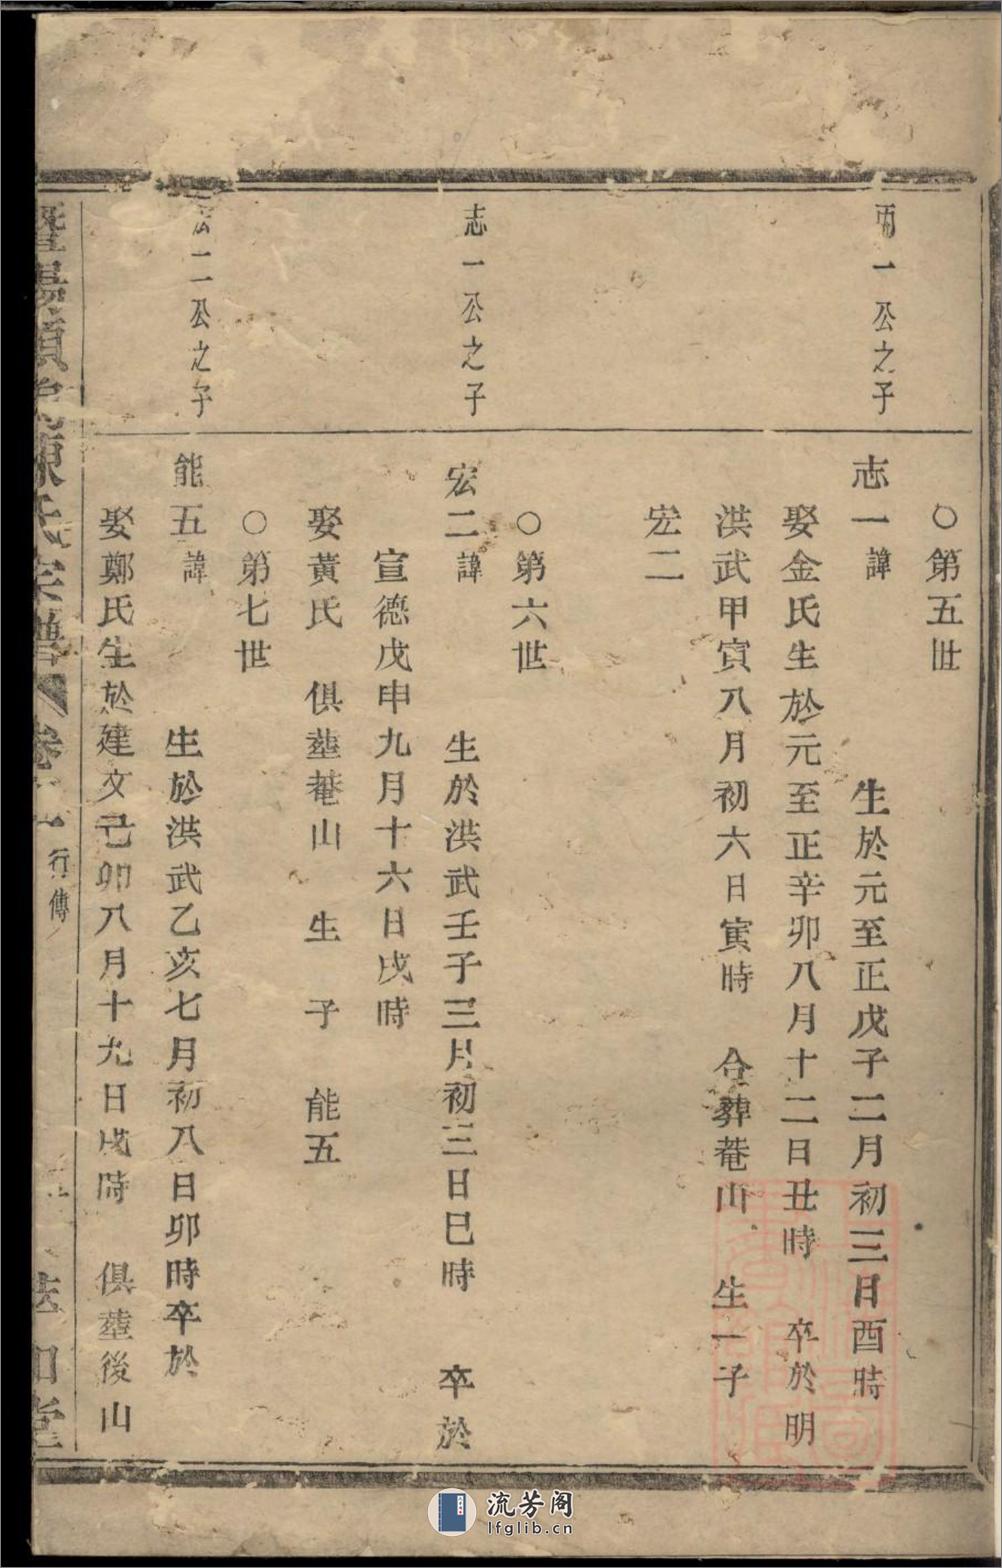 ○第五世
丙一公之子
志一諱　生於元至正戊子二月初三日酉時
娶金氏生於元至正辛卯八月十二日丑時　卒於明
洪武甲寅八月初六日寅時　合葬菴山　生一子
宏二
○第六世
志一公之子
宏二諱　生於洪武壬子三月初三日巳時　卒於
宣德戊申九月十六日戌時
娶黃氏　俱塟菴山　生　子　能五
○第七世
宏二公之子
能五諱　生於洪武乙亥七月初八日卯時卒於
娶鄭氏生於建文己卯八月十九日戌時　俱塟後山
暨陽　氏宗譜　卷　行傳　堂
流芳阁
lfglib.cn